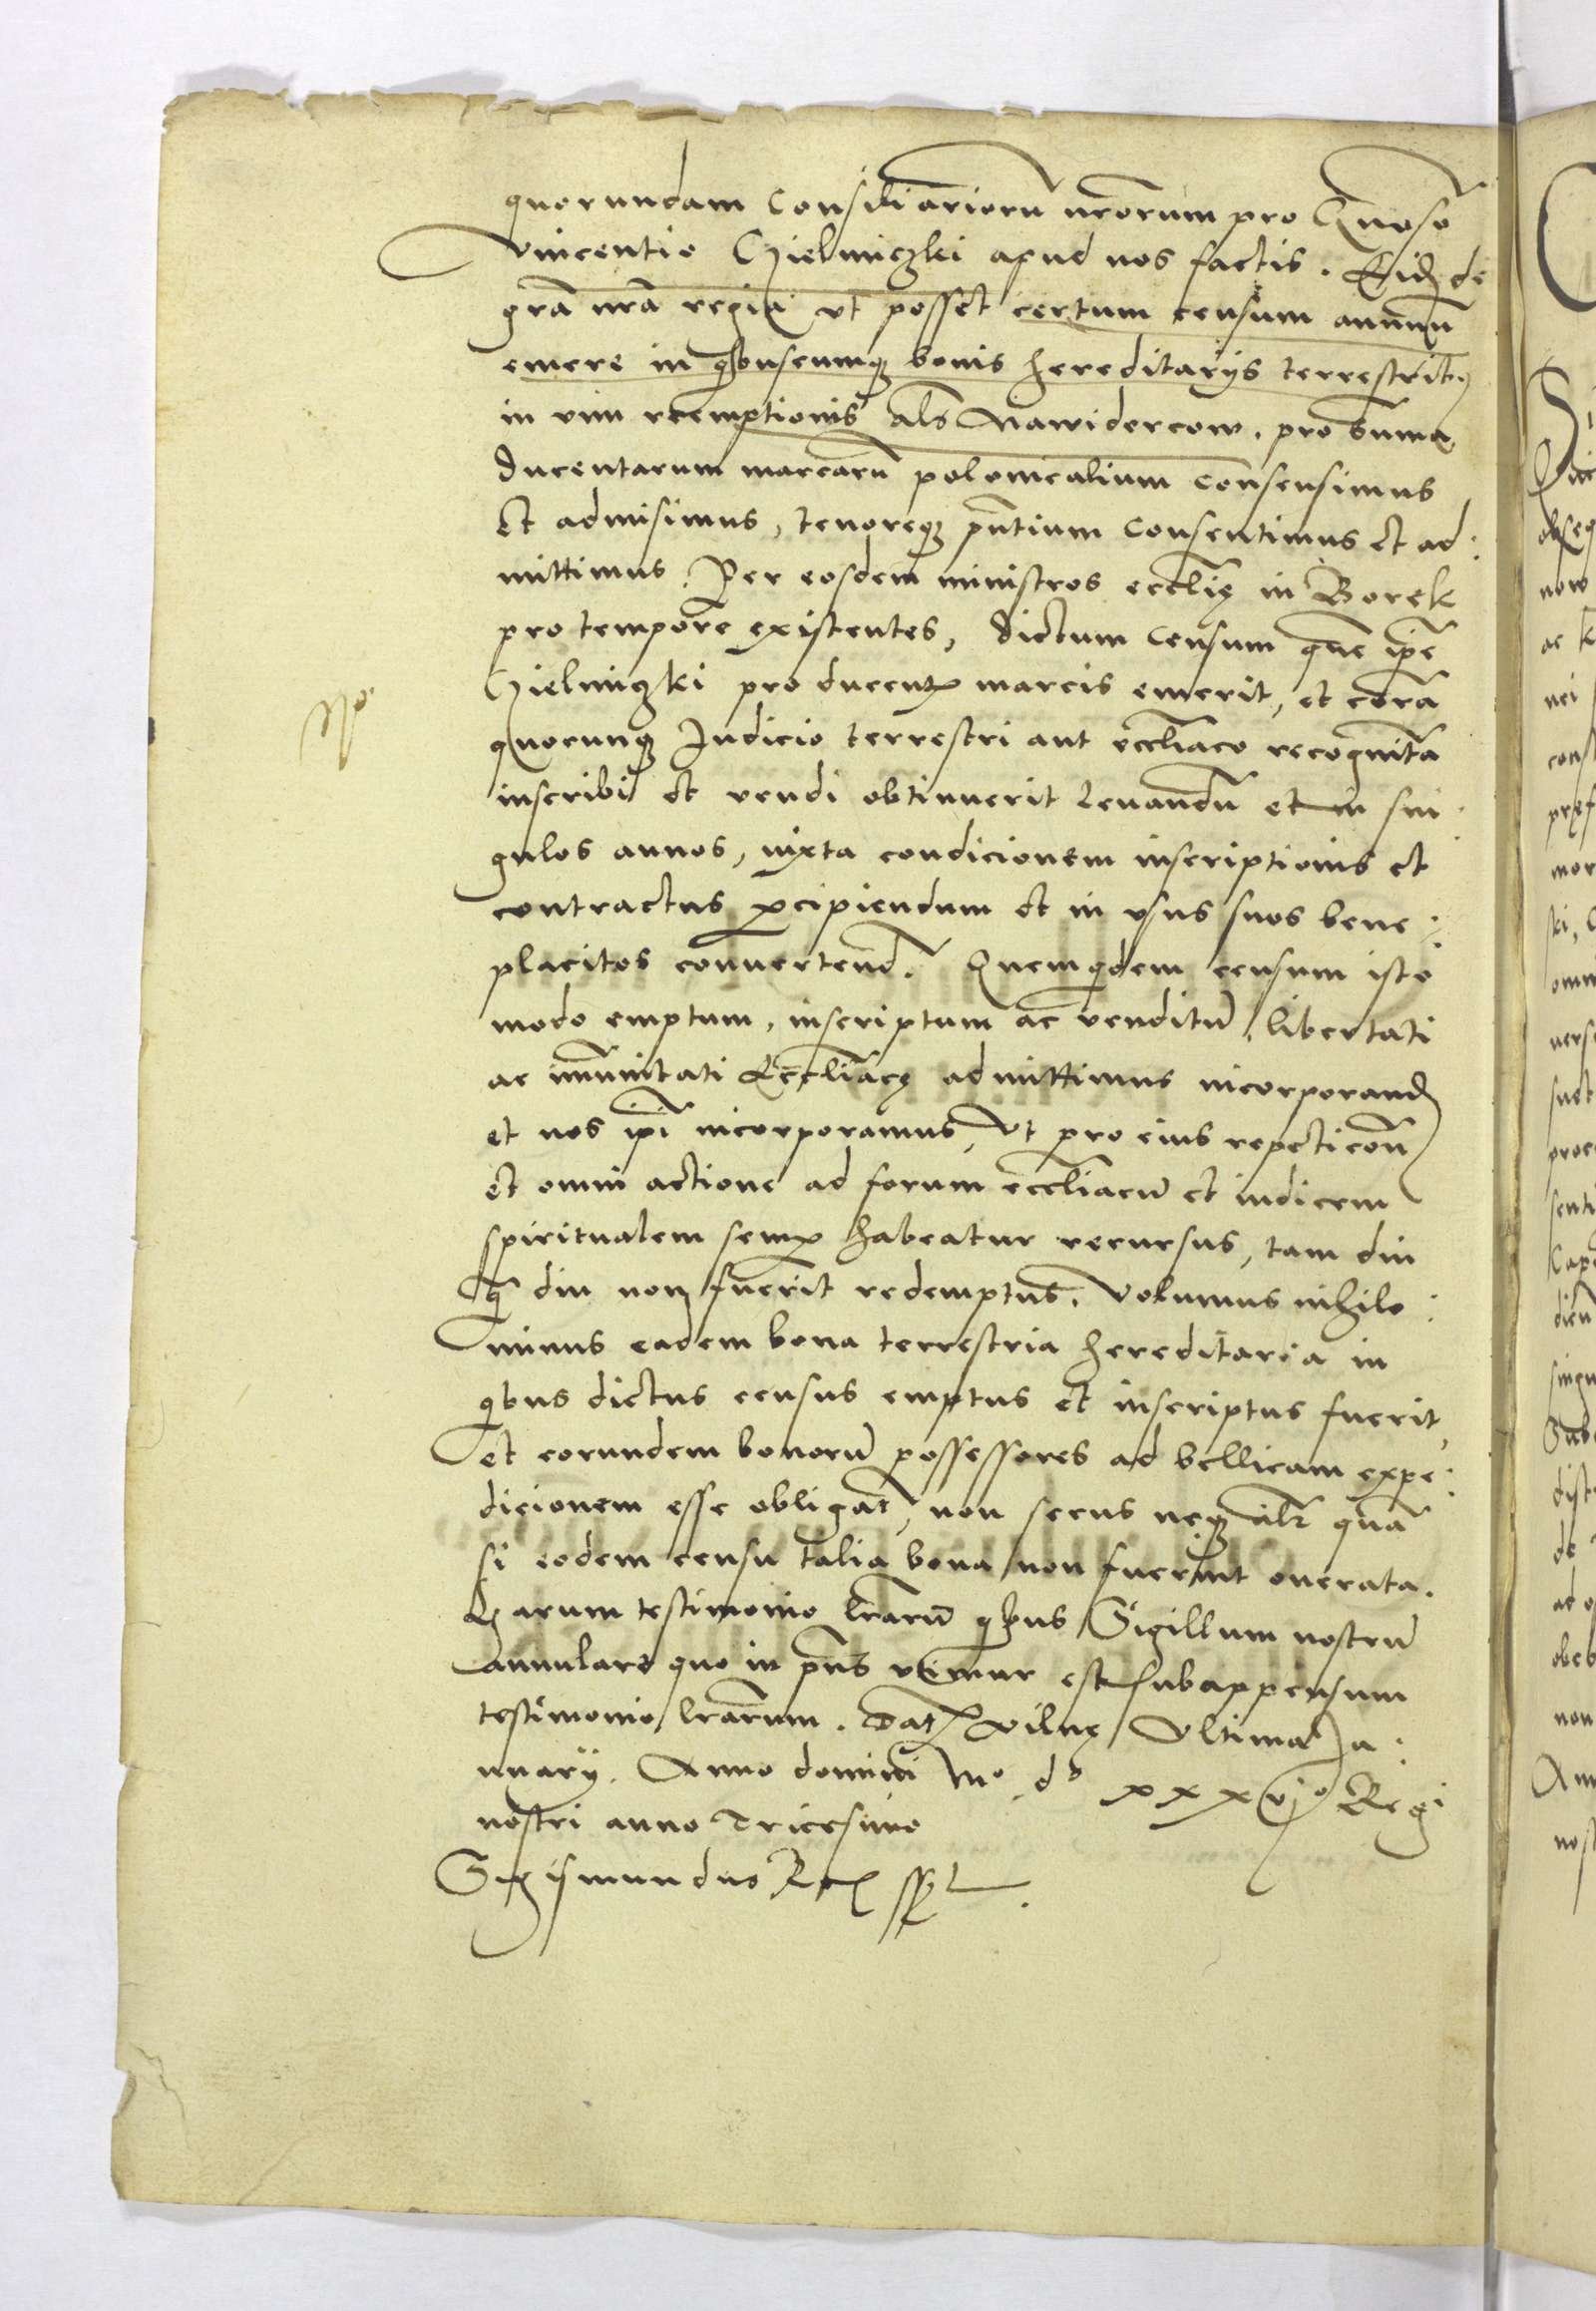 quorundam Consiliariorū nr̄orum pro G̃noso
Vincentio Chielmiczki apud nos factis. Eid de
gr̄a nr̄a regia vt posset certum censum annuū
emere in qbuscumq bonis hereditarijs terrestrib9
in vim reemptionis al̄s Nawidercow. pro sum̄a
ducentarum marcarū polonicalium consensimus
Et admisimus, tenoreq p̄ntium Consentimus et ad:
mittimus. Per eosdem ministros eccl̄ię in Borek
pro tempore existentes, dictum Censum quē ip̄e
Chielmiczki pro ducent marcis emerit, et corā
quocunq Judicio terrestri aut eccl̄iaco recognitā
inscribi et vendi obtinuerit leuandū et in sin:
gulos annos, iuxta condicionem inscriptionis et
contractus pcipiendum et in vsus suos bene:
placitos conuertend. Quemqdem censum isto
modo emptum, inscriptum ac venditū, libertati
ac im̄unitati Eccl̄iacę admittimus incorporand
et nos ip̄i incorporamus, Vt pro eius repeticōn
et omni actione ad forum eccl̄iacū et iudicem
spiritualem semp habeatur recursus, tam diu
q̄ diu non fuerit redemptus. Volumus nihilo:
minus eadem bona terrestria hereditaria in
qbus dictus census emptus et inscriptus fuerit,
et eorundem bonorū possessores ad bellicam expe:
dicionem esse obligat, non secus neq alr quā
si eodem censu talia bona non fuerint onerata.
Harum testimonio lr̄arū qbus Sigillum nostrū
annulare quo in p̄ns vtimur est subappensum
testimonio lr̄arum. Dat Vilnę Vltima Ja:
nuarij. Anno domini Mº dº xxxvjº Regi
nostri anno Tricesimo
Sigismundus Rex sst